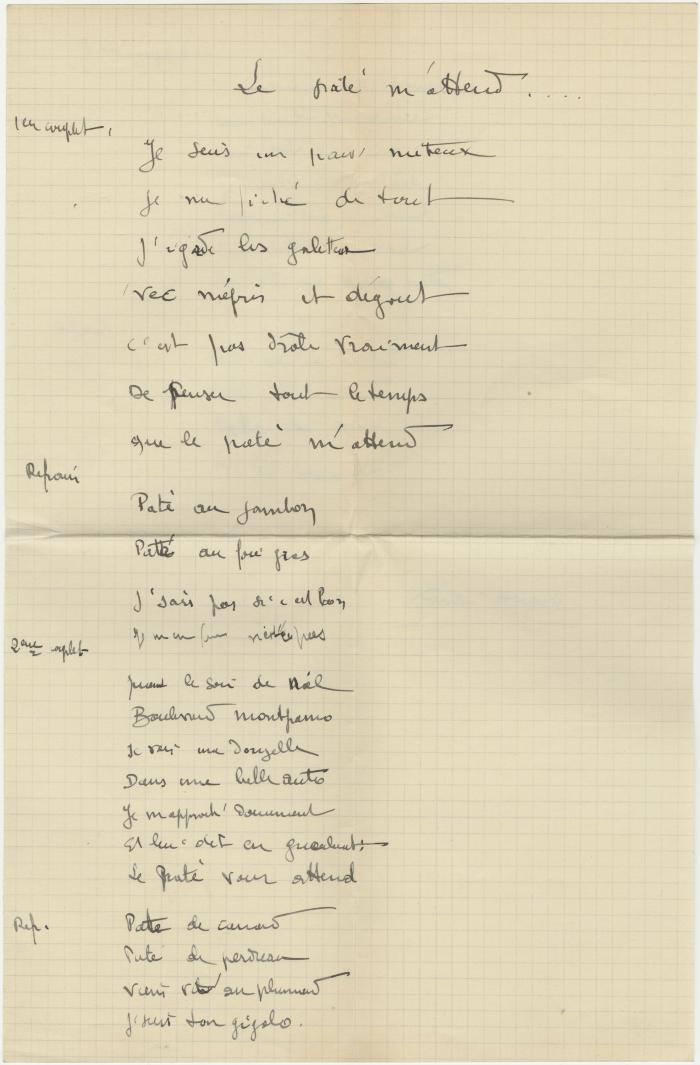 Le paté m'attend.....
1er couplet.
Je suis un pauv' miteux
Je me fiche de tout
J'egade les galetteux
'vec mépris et dégout
C'est pas drôle vraiment
De penser tout le temps
que le paté m'attend
Refrain
Paté au jambon
Paté au foie gras
J'sais pas si c'est bon
J'm'en
2eme couplet
quand le soir de
Boulevard montparno
Je vois une donzelle
Dans une belle auto
Je m'approch' doucement
Et lui dit en gueulant:
Le paté vous attend
Ref.
Paté de canard
Paté de perdreau
Viens vite au plumard
j'suis ton gigolo.